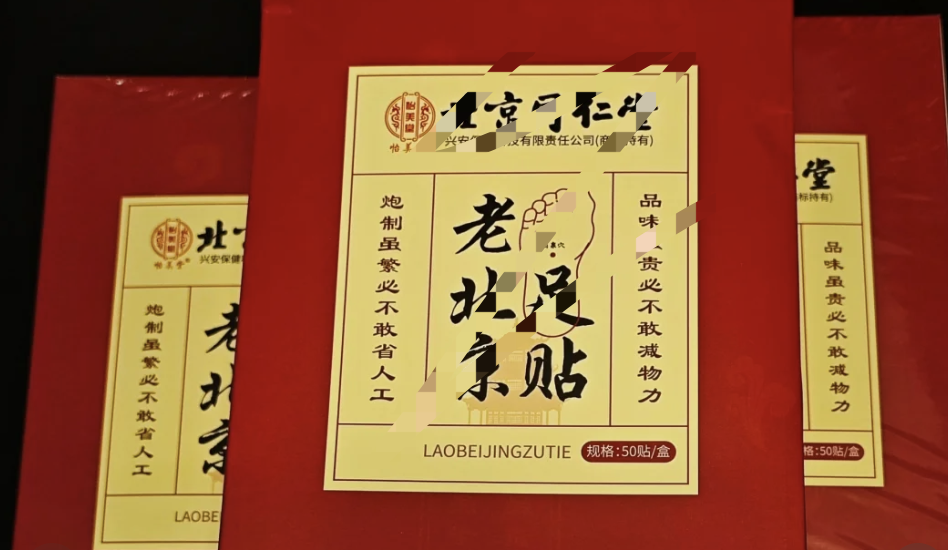 怡美堂
怡美
京 仁
兴安 技有限责任公司(商 持有)
炮制虽繁必不敢省人工
老北京
足贴
品味 贵必不敢减物力
LAOBEIJINGZUTIE
规格:50贴/盒
怡美堂
北京
兴安保健
炮制虽繁必不敢省人工
老北京
LAOBEI
堂
标持有)
品味虽贵必不敢减物力
格:50贴/盒